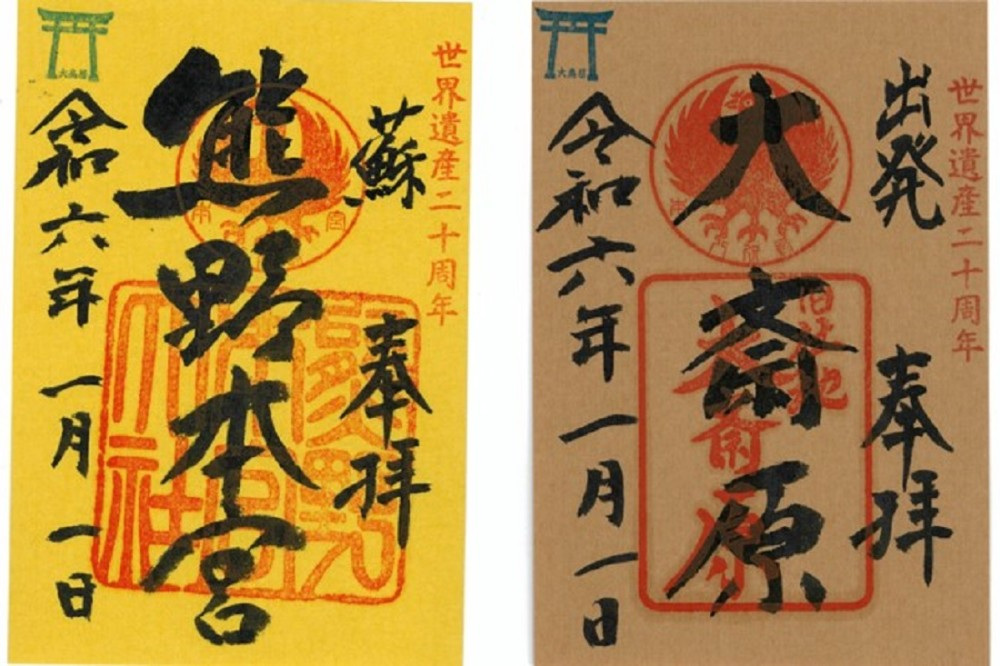 世界遺産二十周年
蘇
奉拝
熊野本宮
令和六年一月一日
大鳥居
熊野本宮大社
世界遺産二十周年
出発
奉拝
大斎原
令和六年一月一日
大鳥居
旧社地
大斎原